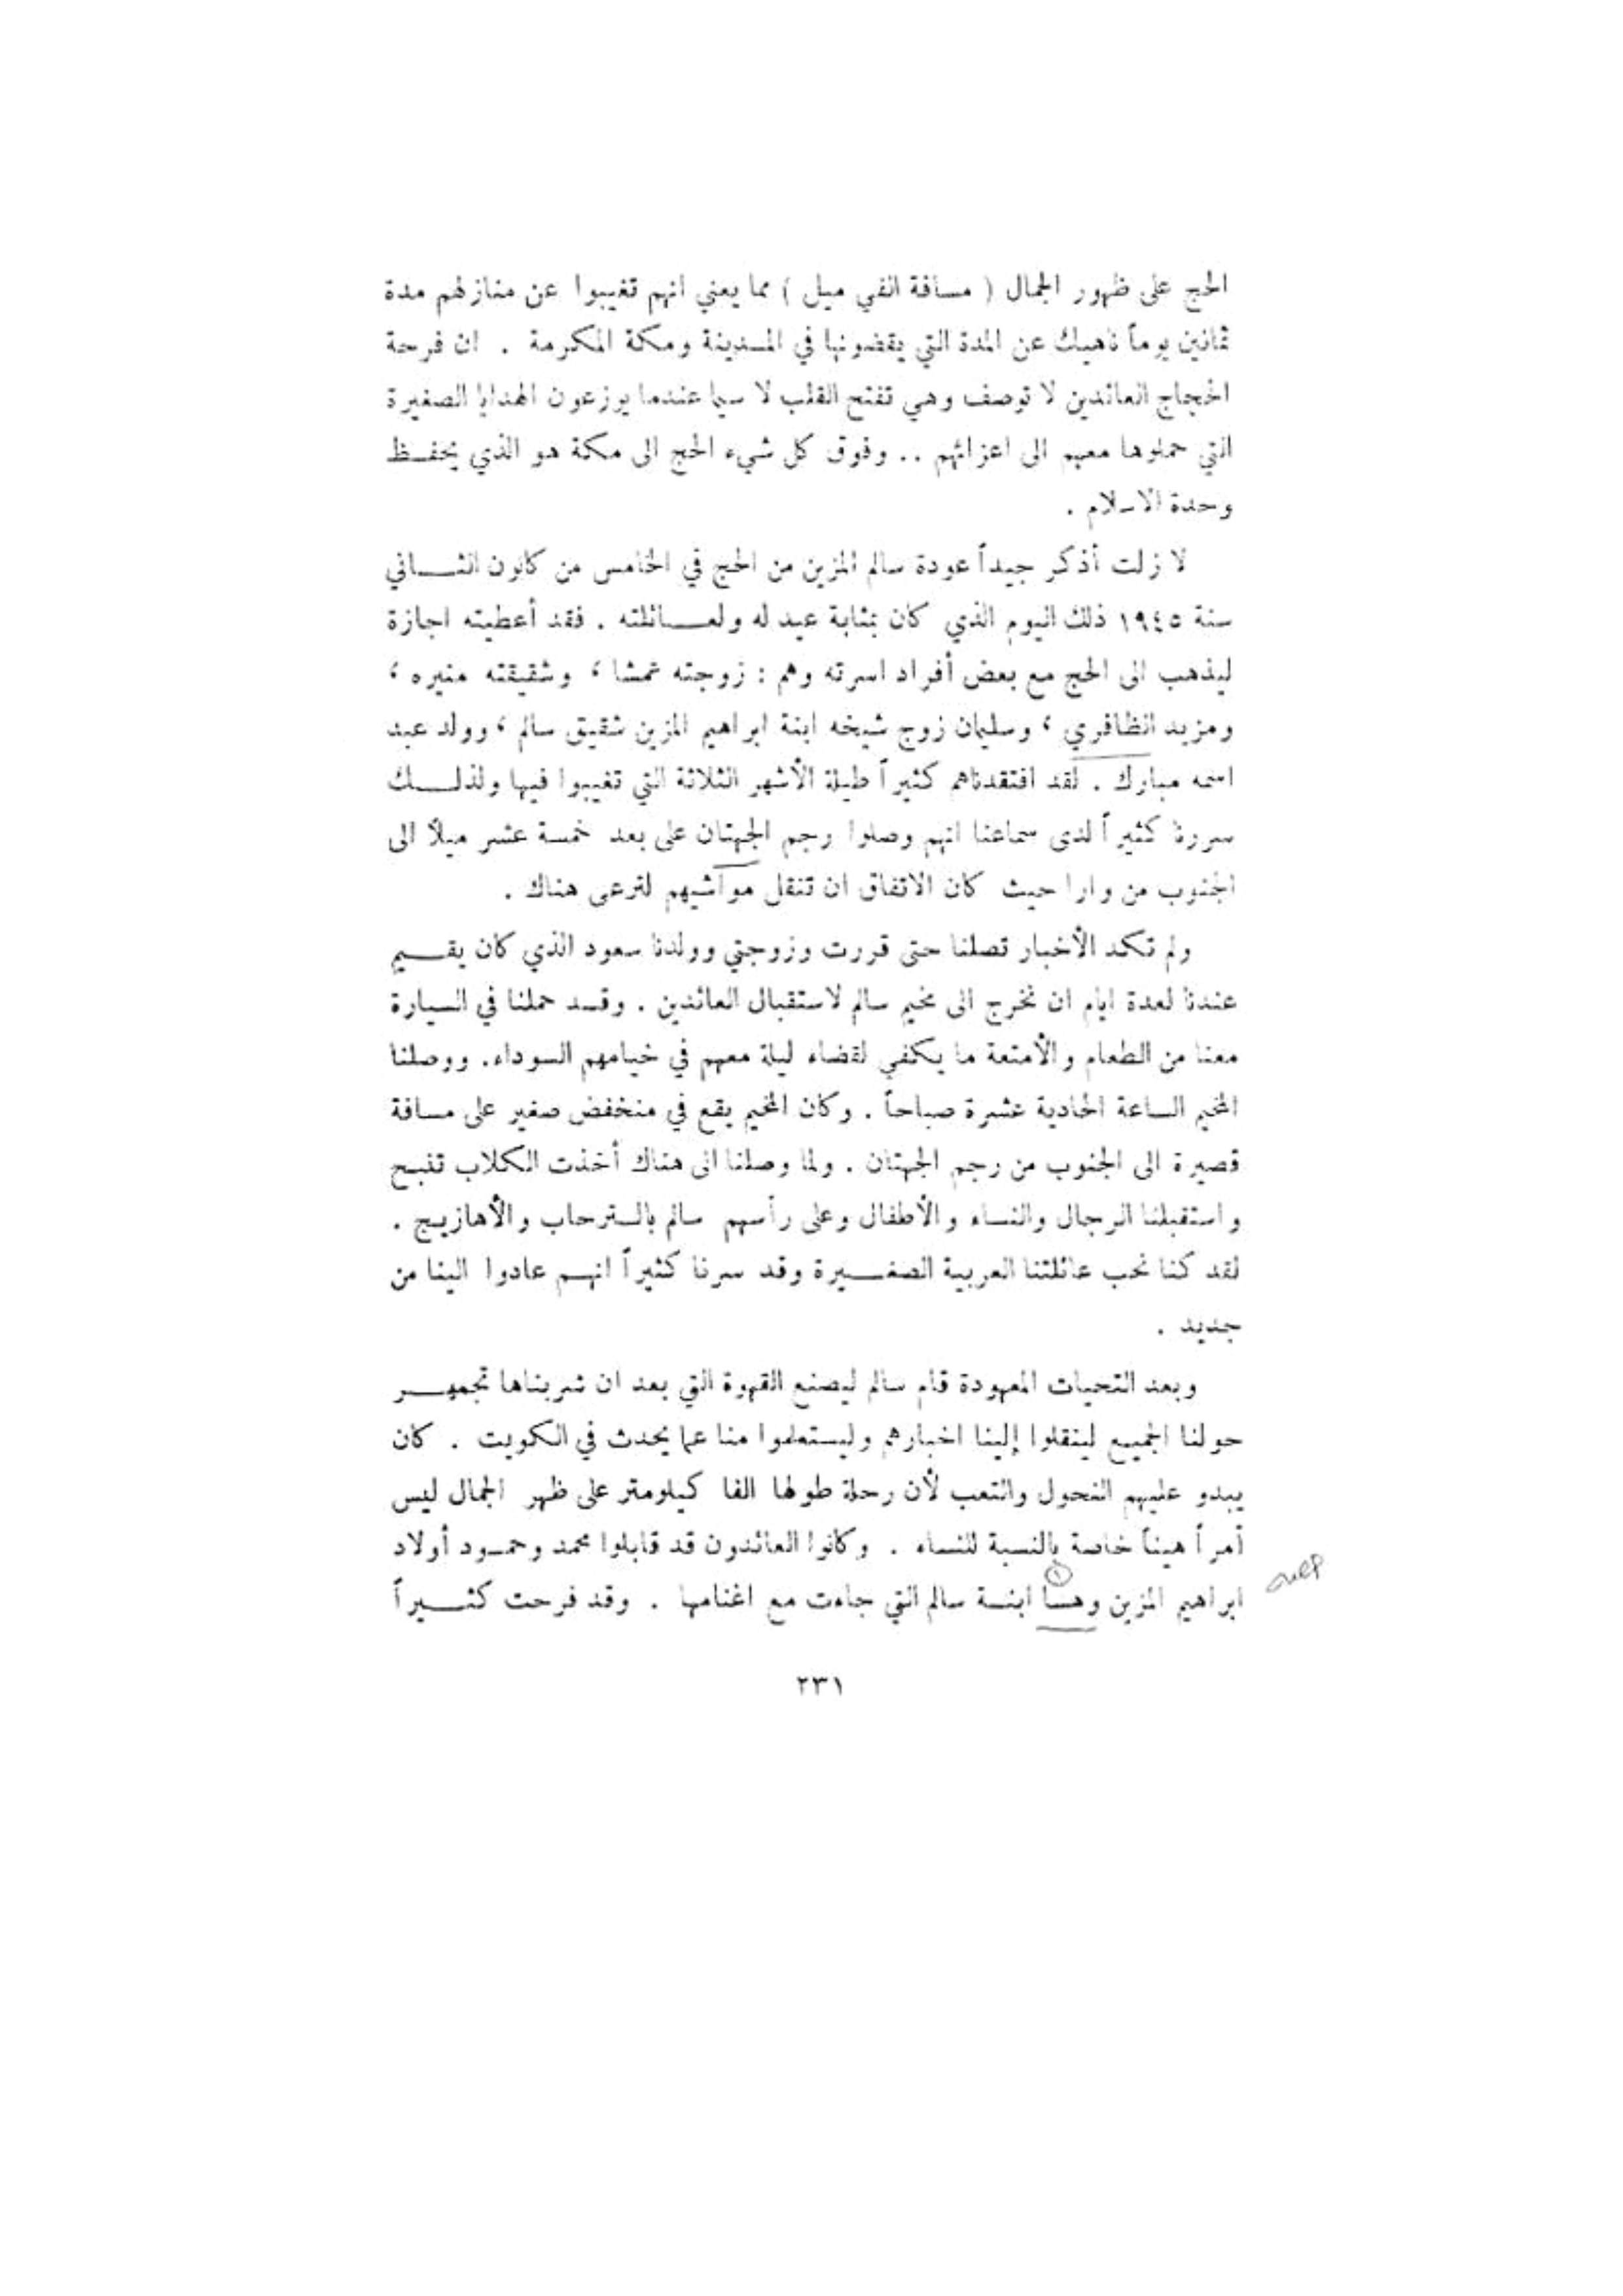 الحج على ظهور الجمال ( مسافة الفي ميل ) مما يعني انهم تغيبوا عن منازلهم مدة
ثمانين يوماً ناهيك عن المدة التي يقضونها في المـدينة ومكة المكرمة . ان فرحة
الحجاج العائدين لا توصف وهي تفتح القلب لا سيما عندما يوزعون الهدايا الصغيرة
التي حملوها معهم الى اعزائهم .. وفوق كل شيء الحج الى مكة هو الذي يحفـظ
وحدة الاسلام .
لا زلت أذكر جيداً عودة سالم المزين من الحج في الخامس من كانون الثـــاني
سنة ١٩٤٥ ذلك اليوم الذي كان بمثابة عيد له ولعـــائلته . فقد أعطيته اجازة
ليذهب الى الحج مع بعض أفراد اسرته وهم : زوجته عمشا ، وشقيقته منيره ،
ومزيد الظافري ، وسليمان زوج شيخه ابنة ابراهيم المزين شقيق سالم ، وولد عبد
اسمه مبارك . لقد افتقدناهم كثيراً طيلة الأشهر الثلاثة التي تغيبوا فيها ولذلـــك
سررنا كثيراً لدى سماعنا انهم وصلوا رجم الجهتان على بعد خمسة عشر ميلاً الى
الجنوب من وارا حيث كان الاتفاق ان تنقل مواشيهم لترعى هناك .
ولم تكد الأخبار تصلنا حتى قررت وزوجتي وولدنا سعود الذي كان يقـــيم
عندنا لعدة ايام ان نخرج الى مخيم سالم لاستقبال العائدين . وقـد حملنا في السيارة
معنا من الطعام والأمتعة ما يكفي لقضاء ليلة معهم في خيامهم السوداء. ووصلنا
المخيم الساعة الحادية عشرة صباحاً . وكان المخيم يقع في منخفض صغير على مسافة
قصيرة الى الجنوب من رجم الجهتان . ولما وصلنا الى هناك أخذت الكلاب تنبـح
واستقبلنا الرجال والنساء والأطفال وعلى رأسهم سالم بالـترحاب والأهازيـج .
لقد كنا نحب عائلتنا العربية الصغـــيرة وقد سرنا كثيراً انهــم عادوا الينا من
جديد .
وبعد التحيات المعهودة قام سالم ليصنع القهوة التي بعد ان شربناها تجمهـــر
حولنا الجميـع لينقلوا إلينا اخبارهم وليستعلموا منا عما يحدث في الكويت . كان
يبدو عليهم النحول والتعب لأن رحلة طولها الفا كيلومتر على ظهر الجمال ليس
أمراً هيناً خاصة بالنسبة للنساء . وكانوا العائدون قد قابلوا محمد وحمـود أولاد
ابراهيم المزين وهسا ابنـة سالم التي جاءت مع اغنامها . وقد فرحت كثـــيراً
٢٣١